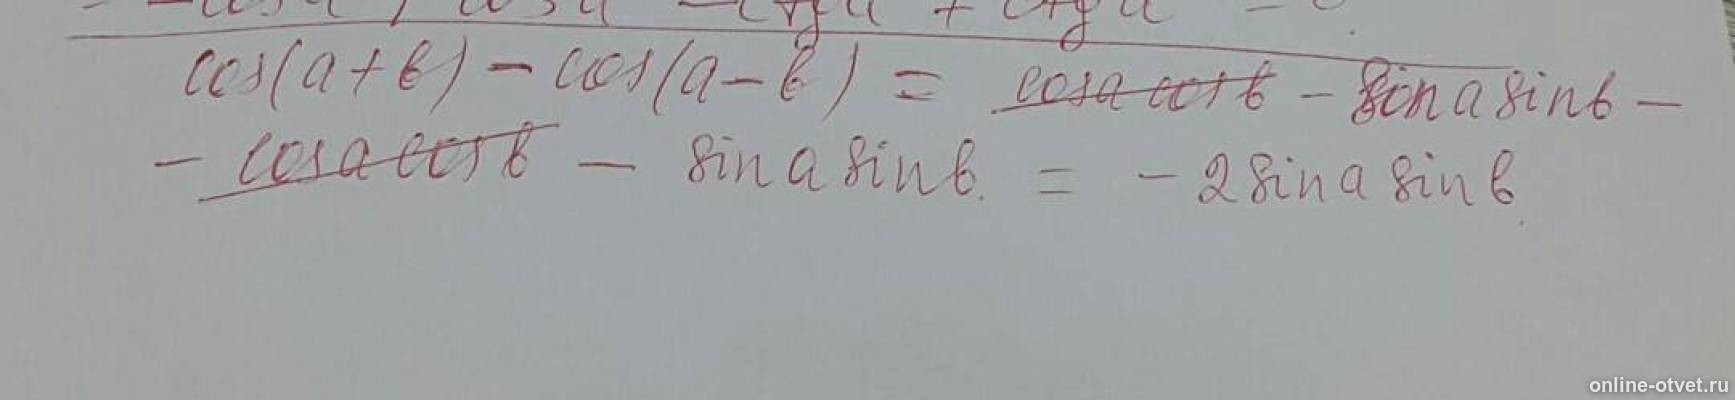 cos(a+b) - cos(a-b) = cosa cosb - sina sinb -
- cosa cosb - sina sinb = -2 sina sinb
online-otvet.ru